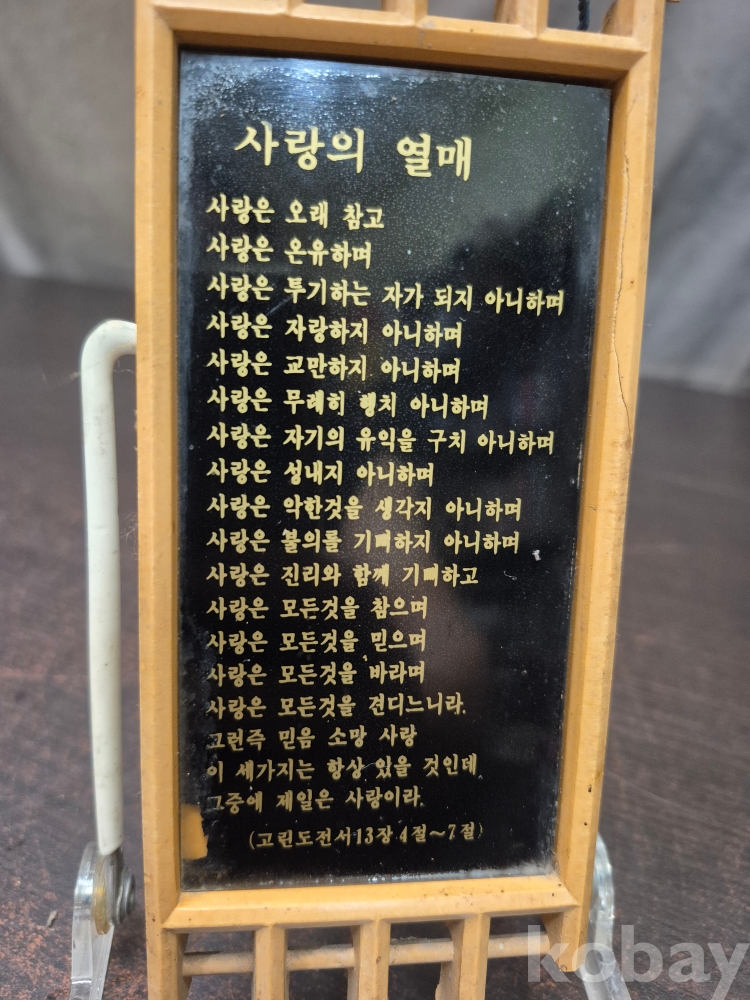 사랑의 열매
사랑은 오래 참고
사랑은 온유하며
사랑은 투기하는 자가 되지 아니하며
사랑은 자랑하지 아니하며
사랑은 교만하지 아니하며
사랑은 무례히 행치 아니하며
사랑은 자기의 유익을 구치 아니하며
사랑은 성내지 아니하며
사랑은 악한것을 생각지 아니하며
사랑은 불의를 기뻐하지 아니하며
사랑은 진리와 함께 기뻐하고
사랑은 모든것을 참으며
사랑은 모든것을 믿으며
사랑은 모든것을 바라며
사랑은 모든것을 견디느니라.
그런즉 믿음 소망 사랑
이 세가지는 항상 있을 것인데
그중에 제일은 사랑이라.
(고린도전서13장 4절~7절)
kobay